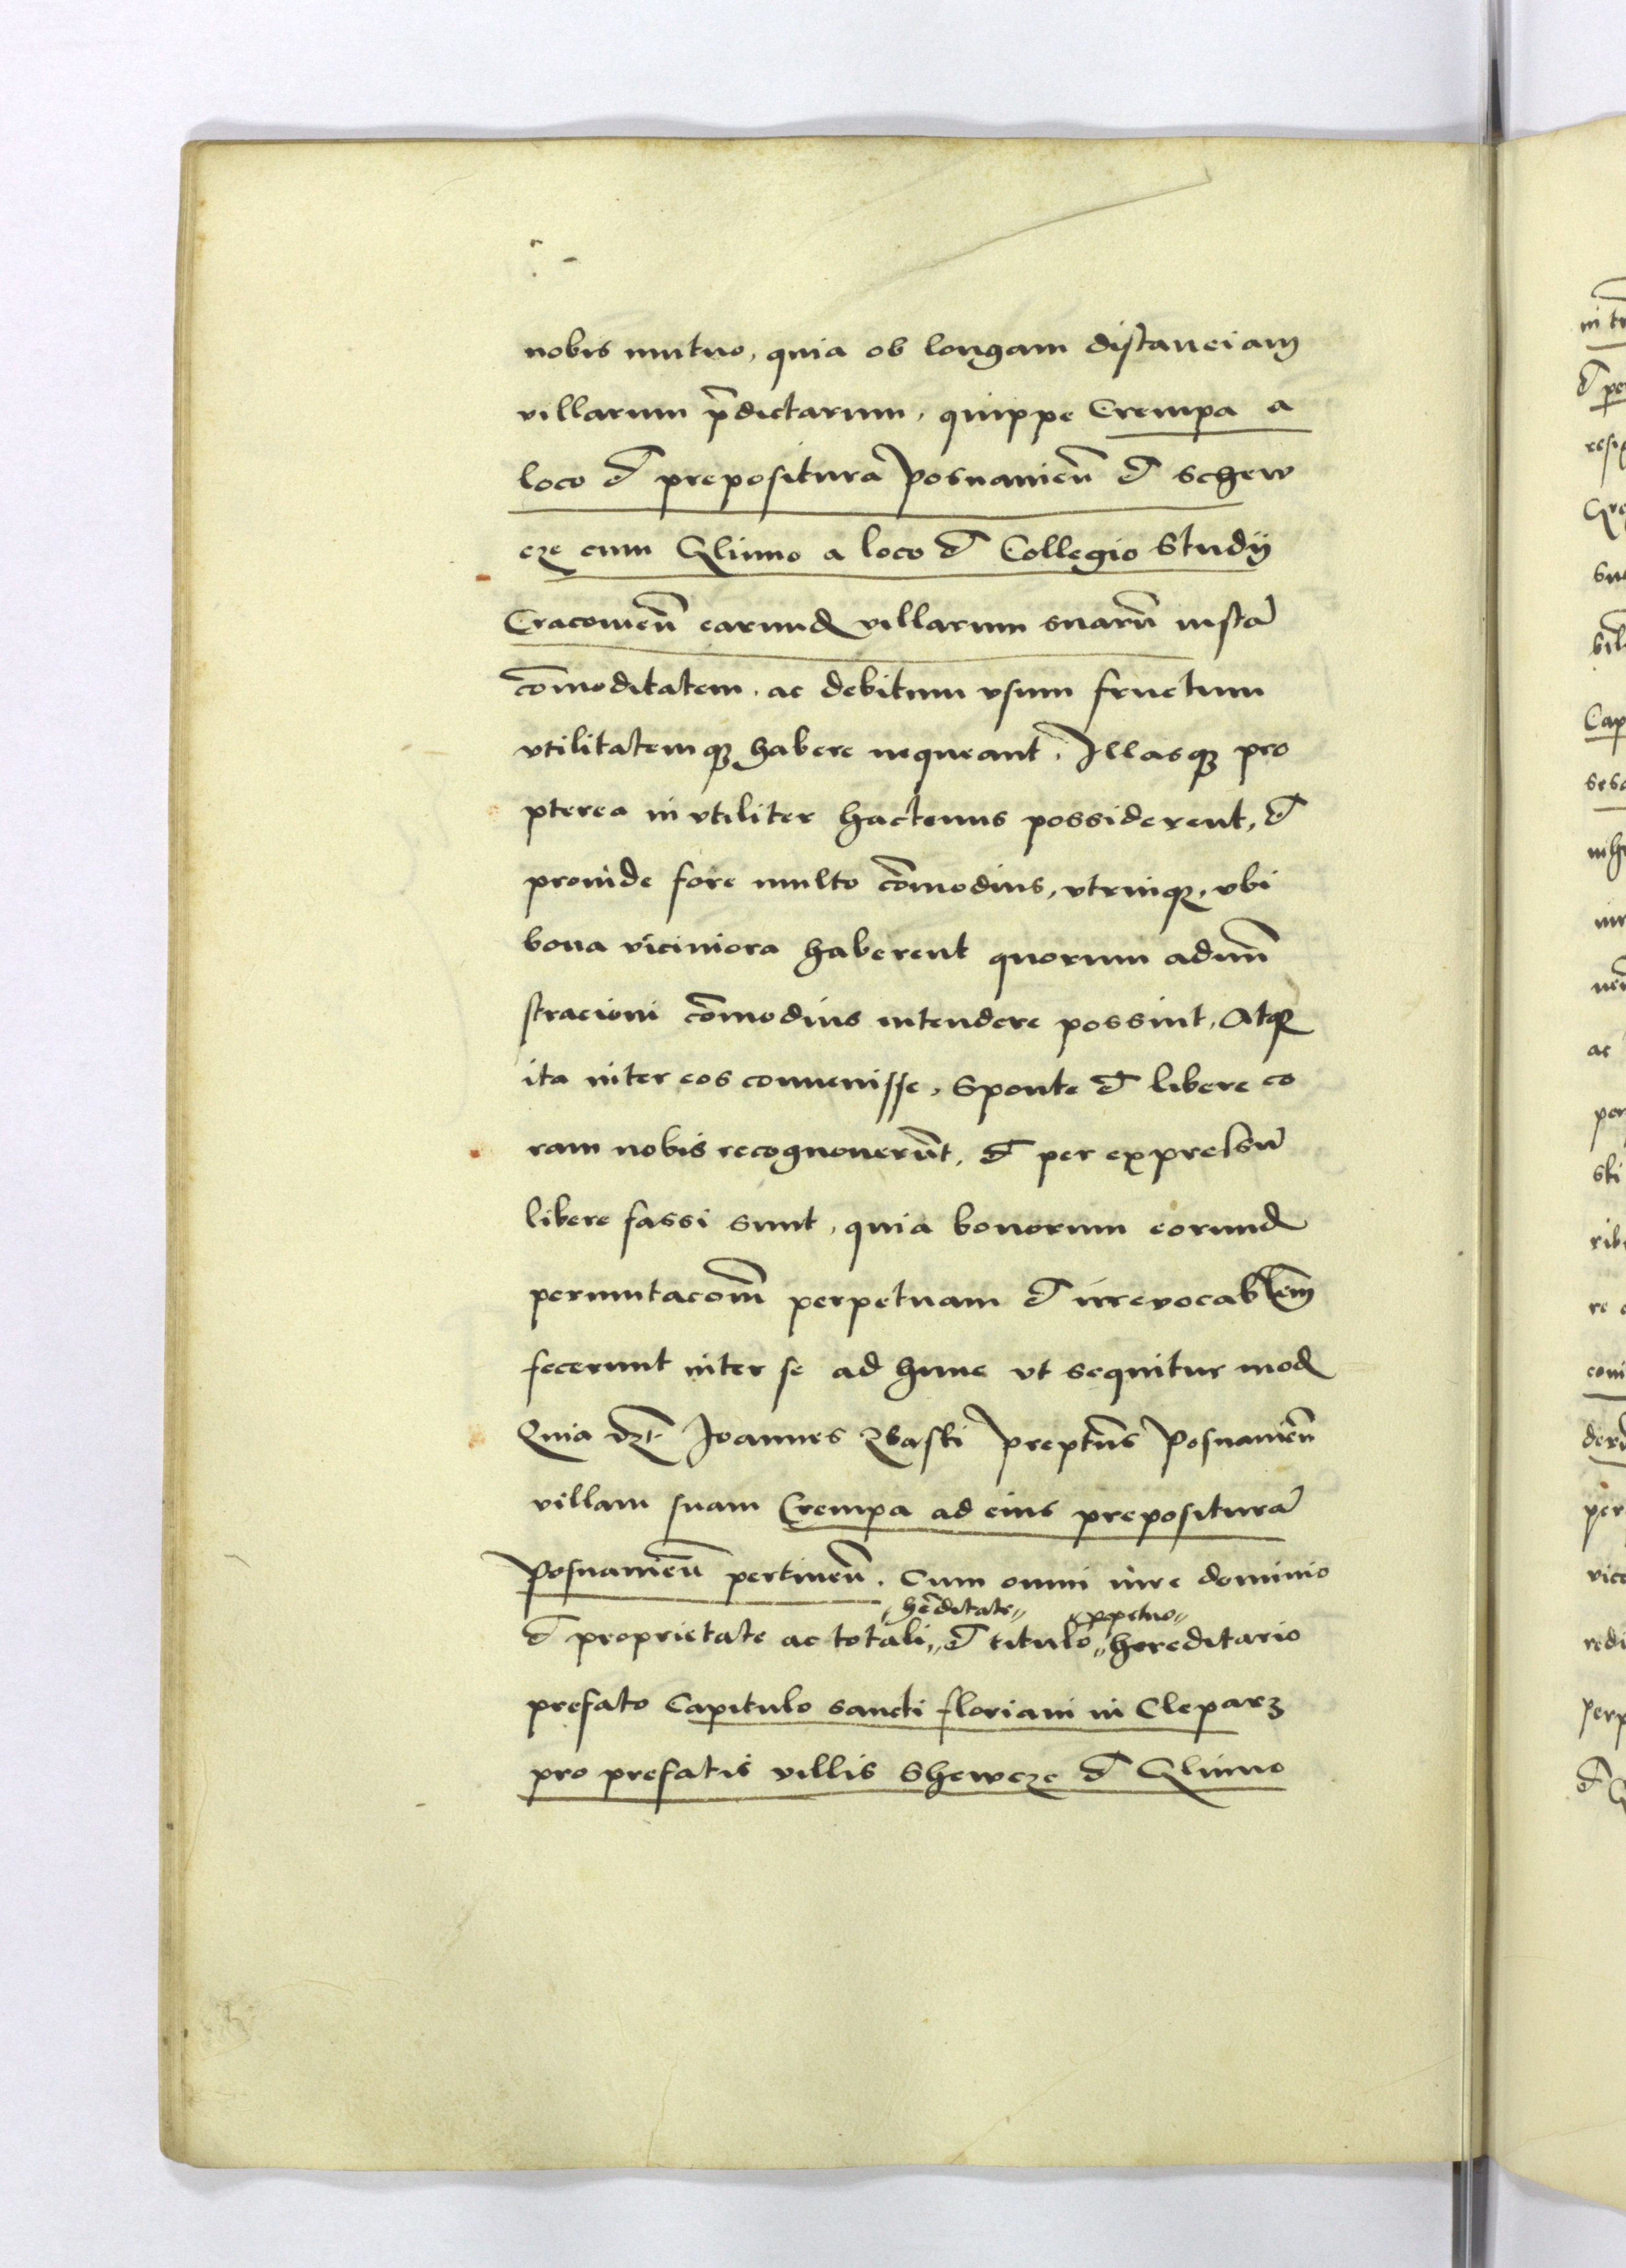 nobis mutuo, quia ob longam distanciam
villarum p̄dictarum, quippe Crempa a
loco et prepositura Posnanien̄ et Schew
cze cum Glinno a loco et Collegio Studij
Cracovien̄ earundꝫ villarum suarū iustā
cōmoditatem, ac debitum vsum fructum
vtilitatemqꝫ habere nequeant. Illasqꝫ pro
pterea in vtiliter hactenus possiderent, et
proinde fore multo cōmodius, vtrinqꝫ, vbi
bona viciniora haberent quorum admī
stracioni cōmodius intendere possint, Atqꝫ
ita inter eos convenisse, Sponte et libere co
ram nobis recognoverūt, et per expressū
libere fassi sunt, quia bonorum eorundꝫ
permutacōm̄ perpetuam et irrevocabl̄em
fecerunt inter se ad hunc vt sequitur modꝫ
Quia dꝫt Joannes Zbaski Preptūs Posnanien̄
villam suam Crempa ad eius preposituram̄
Posnanien̄ pertinen̄. Cum omni iure dominio
,,hēditate,, ,,ꝑpetuo,,
et proprietate ac totali,, et titulo,, hereditario
prefato Capitulo sancti floriani in Cleparz
pro prefatis villis Shewcze et Glinno